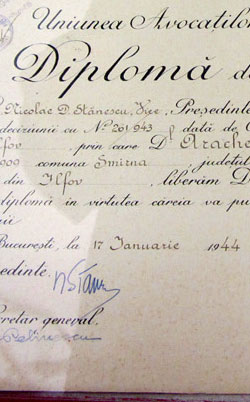 Uniunea Avocaților
Diplomă d
Nicolae D. Stănescu Vice, Președinte
deciziunii cu Nº 261 943 dată de
fov prin care Dl Arache
909 comuna Smirna județul
din Ilfov, liberăm D
diplomă in virtutea căreia va pu
ii
București, la 17 Ianuarie 1944
ședinte,
N Stăn
cretar general,